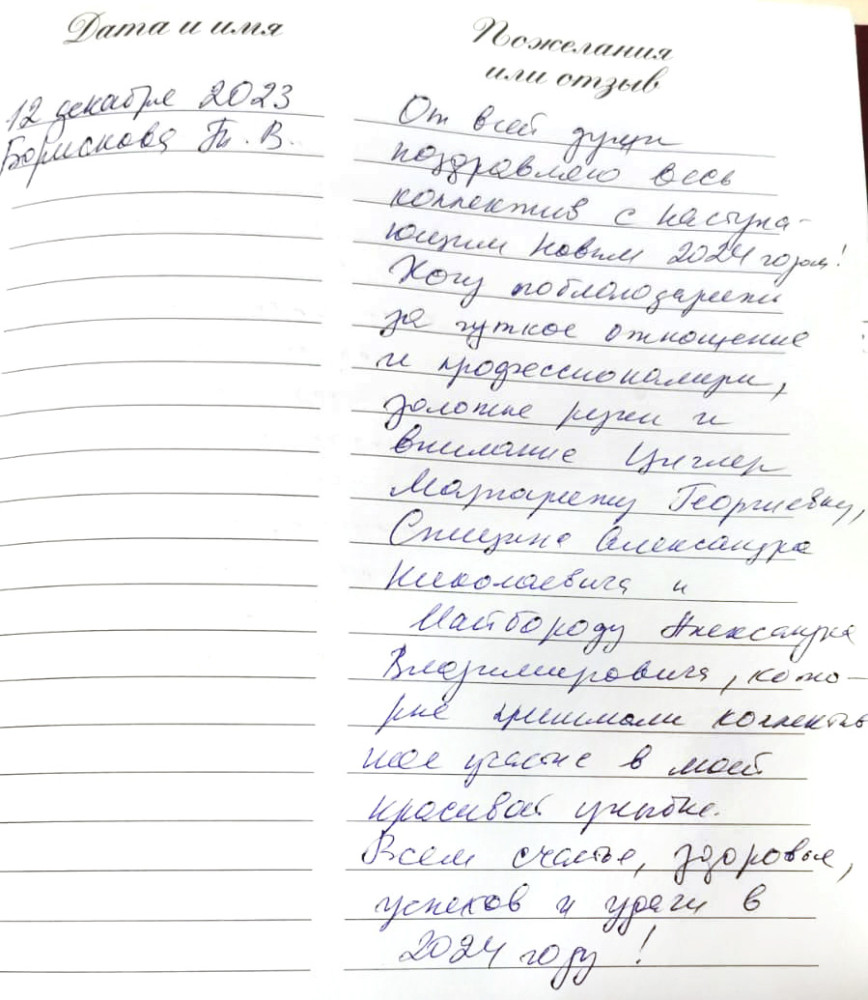 Дата и имя
12 декабря 2023
Борискова Т. В.
Пожелания
или отзыв
От всей души
поздравляю весь
коллектив с наступа-
ющим Новым 2024 годом!
Хочу поблагодарить
за чуткое отношение
и профессионализм,
золотые руки и
внимание Циглер
Маргариту Георгиевну,
Спицына Александра
Николаевича и
Майбороду Александра
Владимировича, кото-
рые принимали коллектив
ное участие в моей
красивой улыбке.
Всем счастья, здоровья,
успехов и удачи в
2024 году!